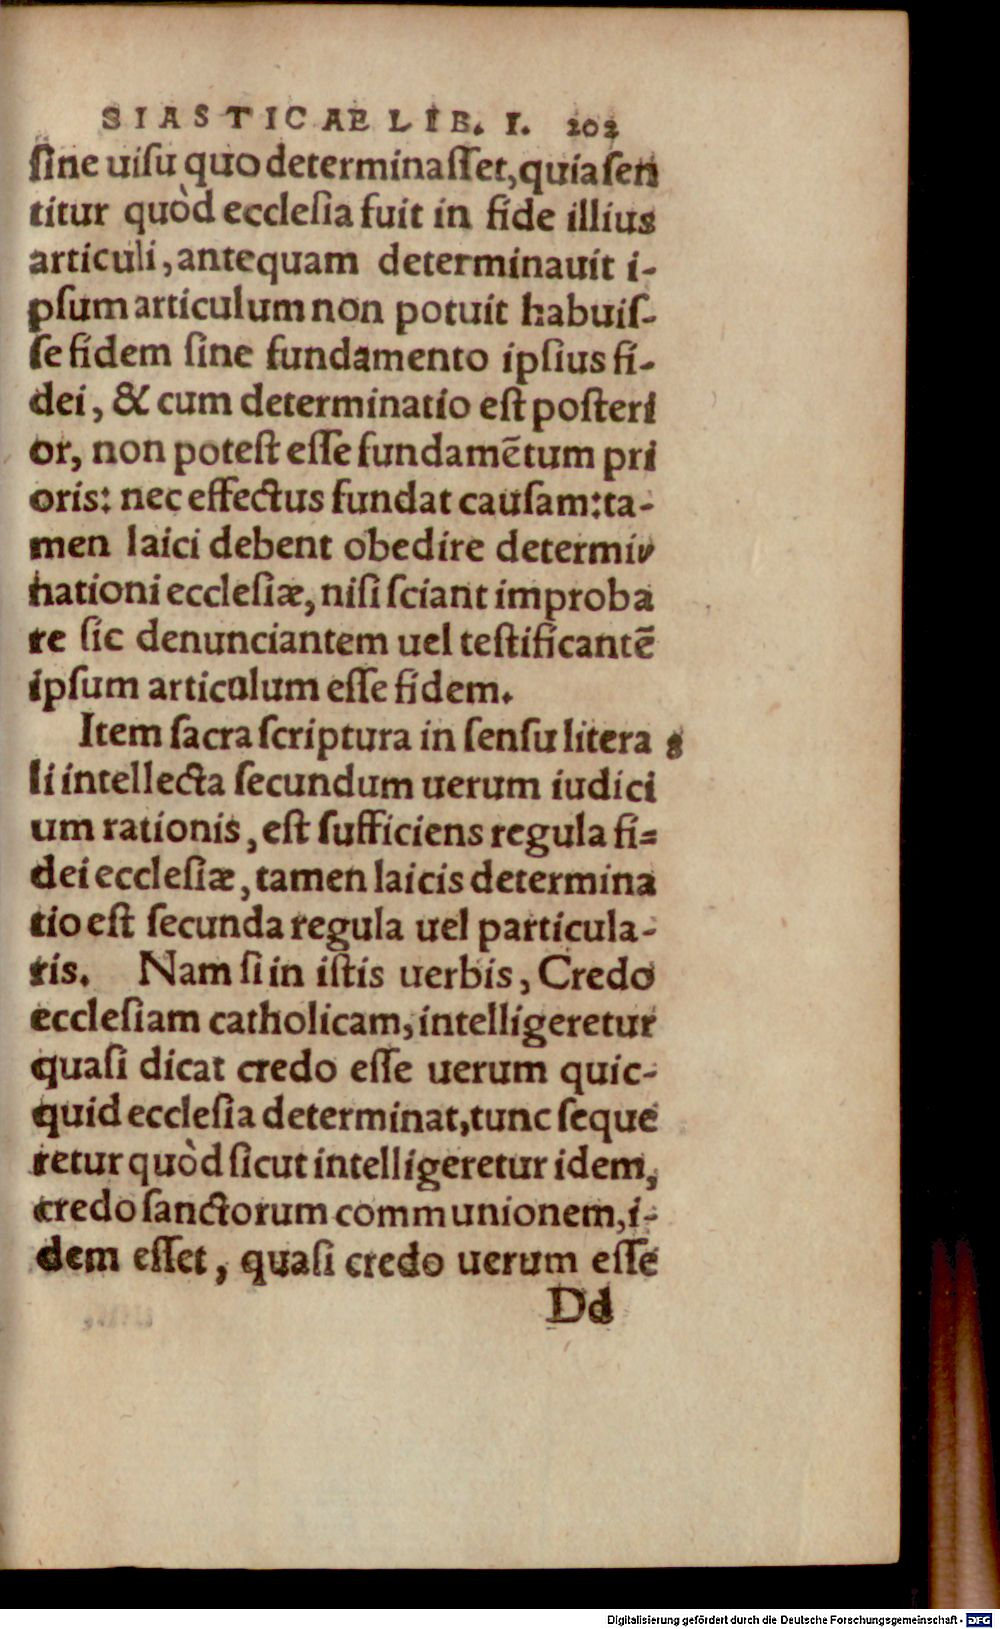 SIASTICAE LIB. I. 202
ſine uiſu quo determinaſſet, quia ſen
titur quòd eccleſia fuit in fide illius
articuli, antequam determinauit i-
pſum articulum non potuit habuiſ-
ſe fidem ſine fundamento ipſius fi-
dei, & cum determinatio eſt poſteri
or, non poteſt eſſe fundamẽtum pri
oris: nec effectus fundat cauſam: ta-
men laici debent obedire determi-
nationi eccleſiæ, niſi ſciant improba
re ſic denunciantem uel teſtificantẽ
ipſum articulum eſſe fidem.
Item ſacra ſcriptura in ſenſu litera g
li intellecta ſecundum uerum iudici
um rationis, eſt ſufficiens regula fi=
dei eccleſiæ, tamen laicis determina
tio eſt ſecunda regula uel particula-
ris. Nam ſi in iſtis uerbis, Credo
eccleſiam catholicam, intelligeretur
quaſi dicat credo eſſe uerum quic-
quid eccleſia determinat, tunc ſeque
retur quòd ſicut intelligeretur idem,
credo ſanctorum communionem, i-
dem eſſet, quaſi credo uerum eſſe
Dd
Digitalisierung gefördert durch die Deutsche Forschungsgemeinschaft - DFG